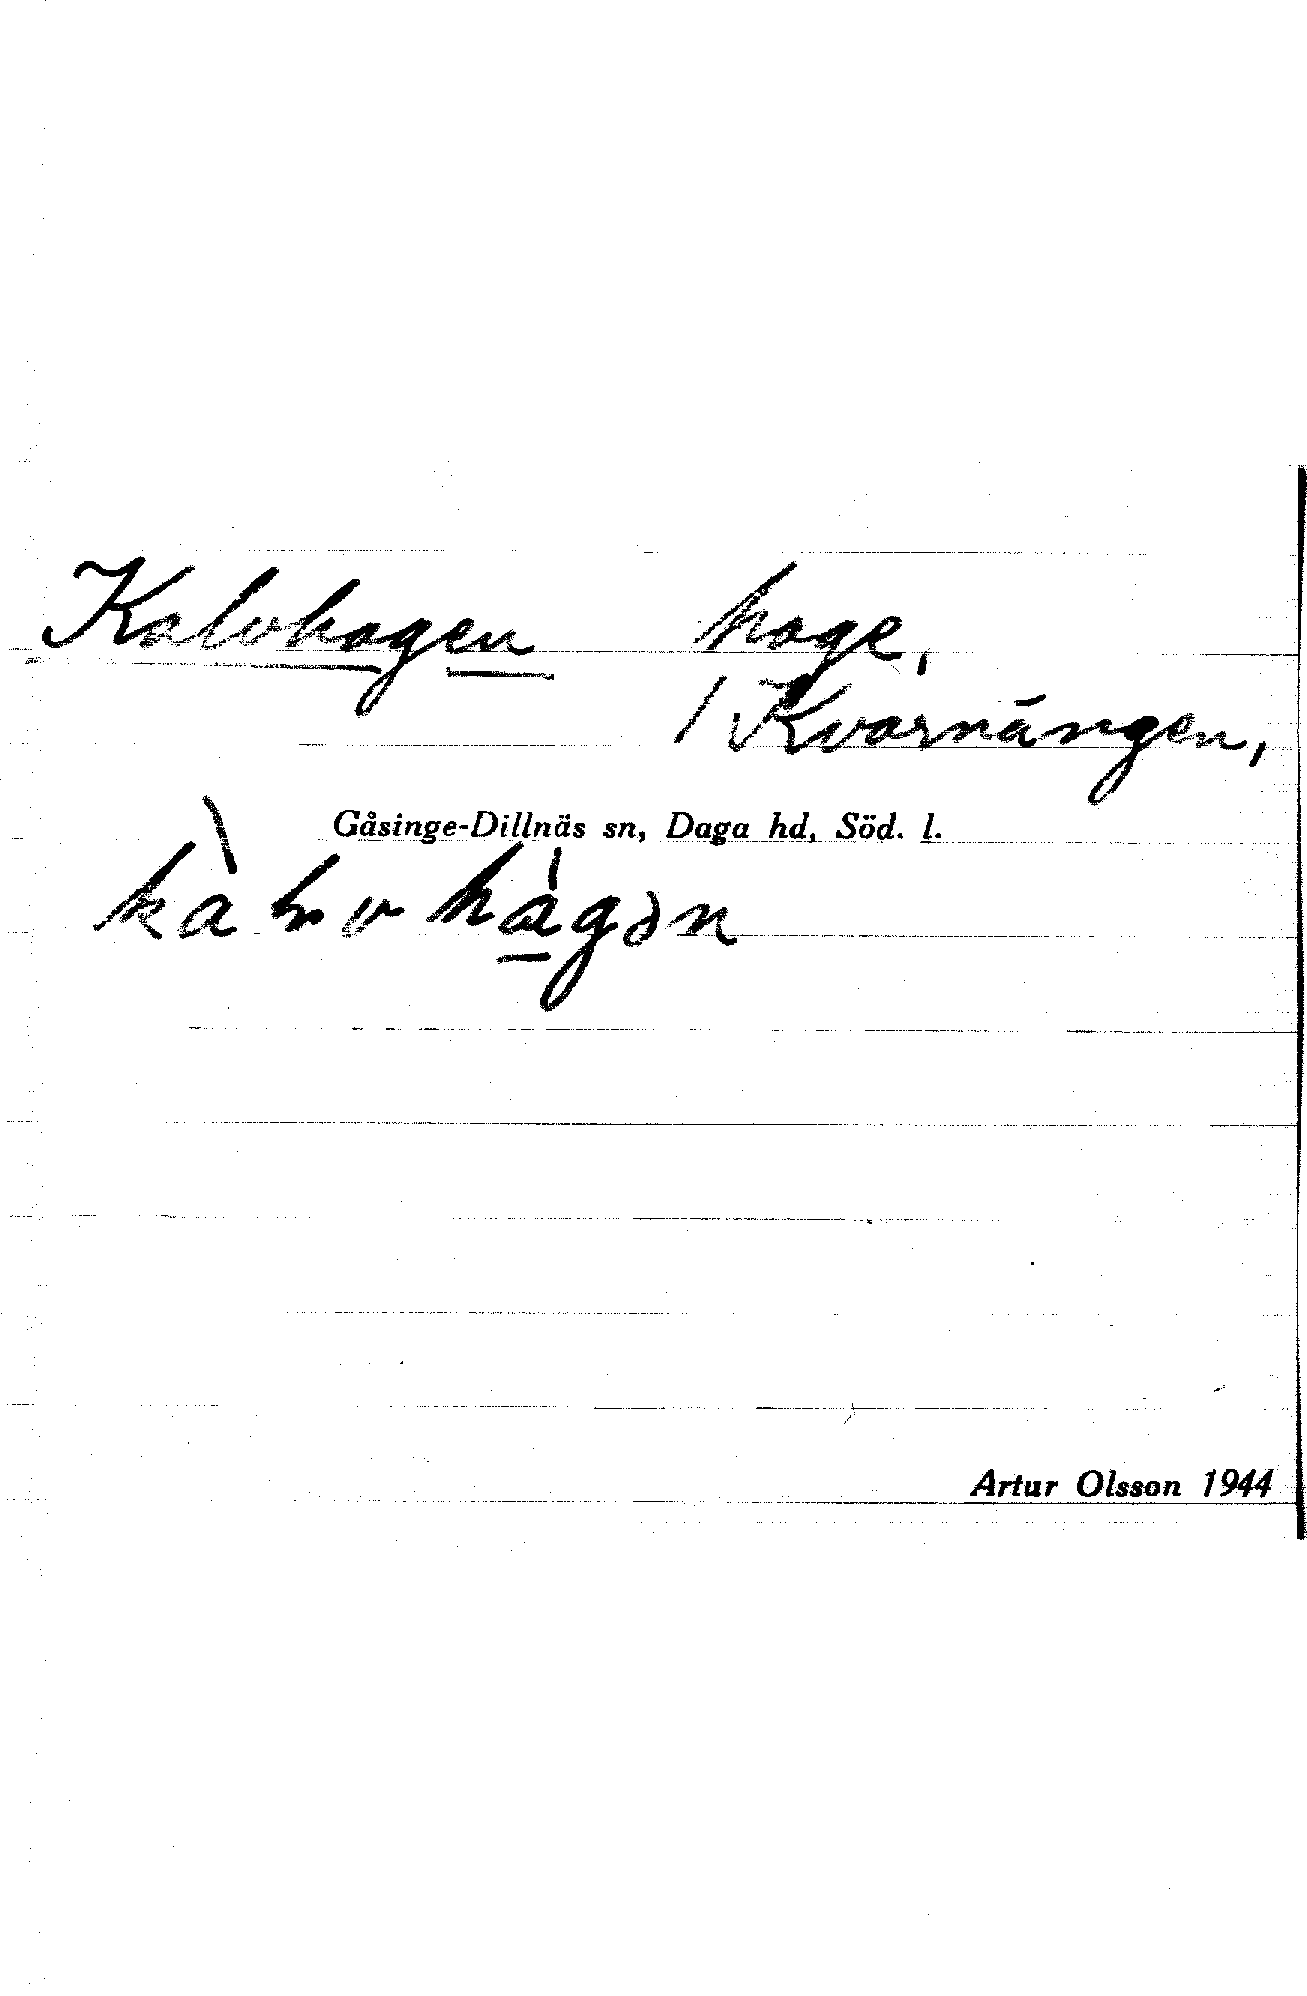 Kalvhagen hage,
/ Kvarnängen,
Gåsinge-Dillnäs sn, Daga hd, Söd. l.
Artur Olsson 1944